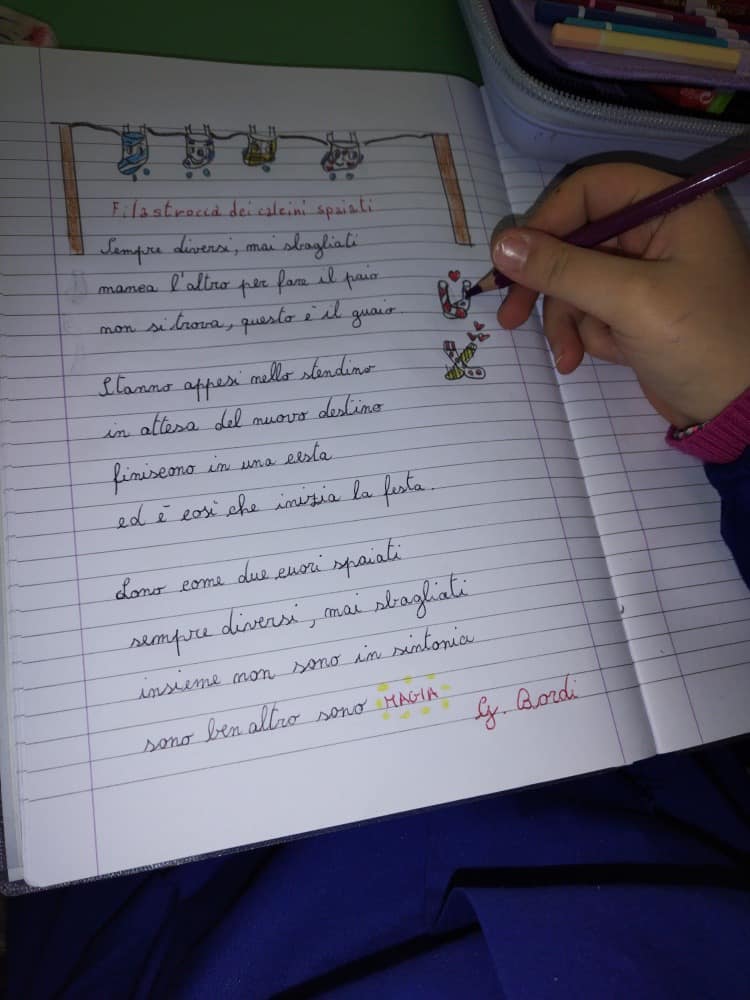 Filastrocca dei calzini spaiati
Sempre diversi, mai sbagliati
manca l'altro per fare il paio
non si trova, questo è il guaio.
Stanno appesi nello stendino
in attesa del nuovo destino
finiscono in una cesta
ed è così che inizia la festa.
Sono come due cuori spaiati
sempre diversi, mai sbagliati
insieme non sono in sintonia
sono ben altro sono MAGIA
G. Bordi